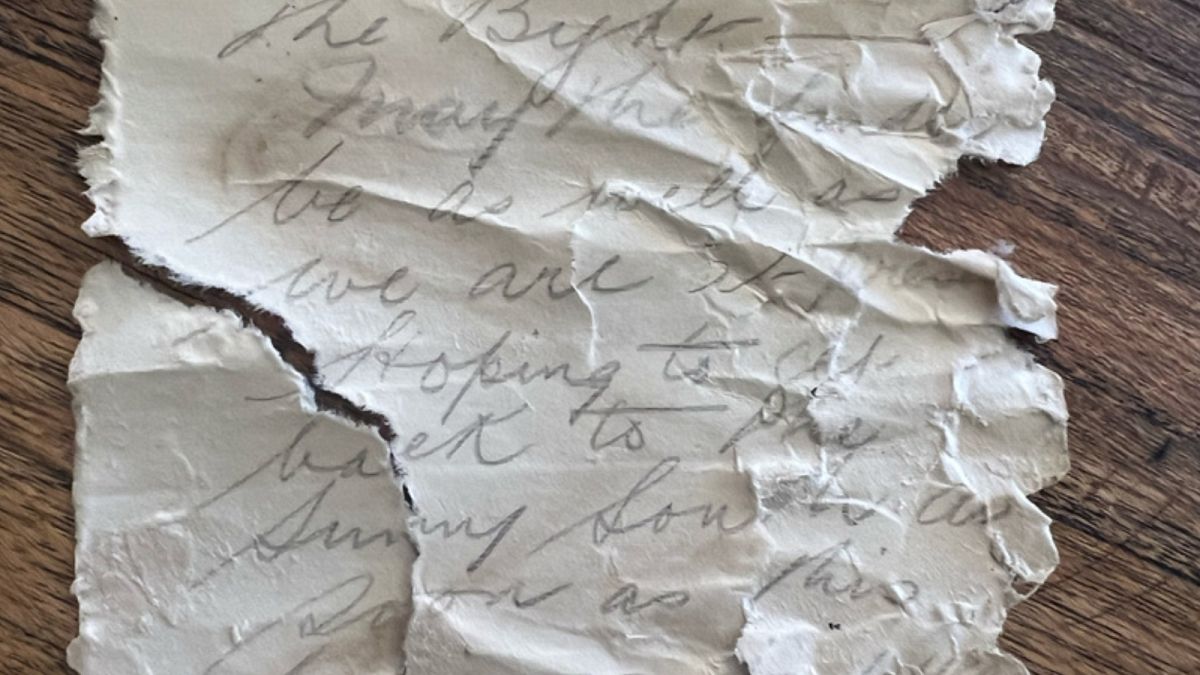 the Bight
May the
be as well as
we are at
Hoping to get
back to the
Sunny South as
Soon as this